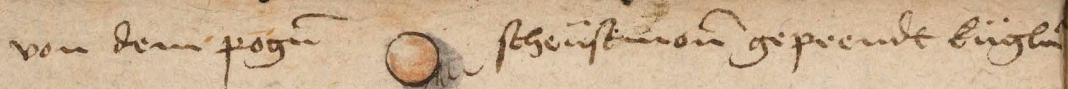 von dem pogn̄ scheüst mon̄ geprendt kügln̄